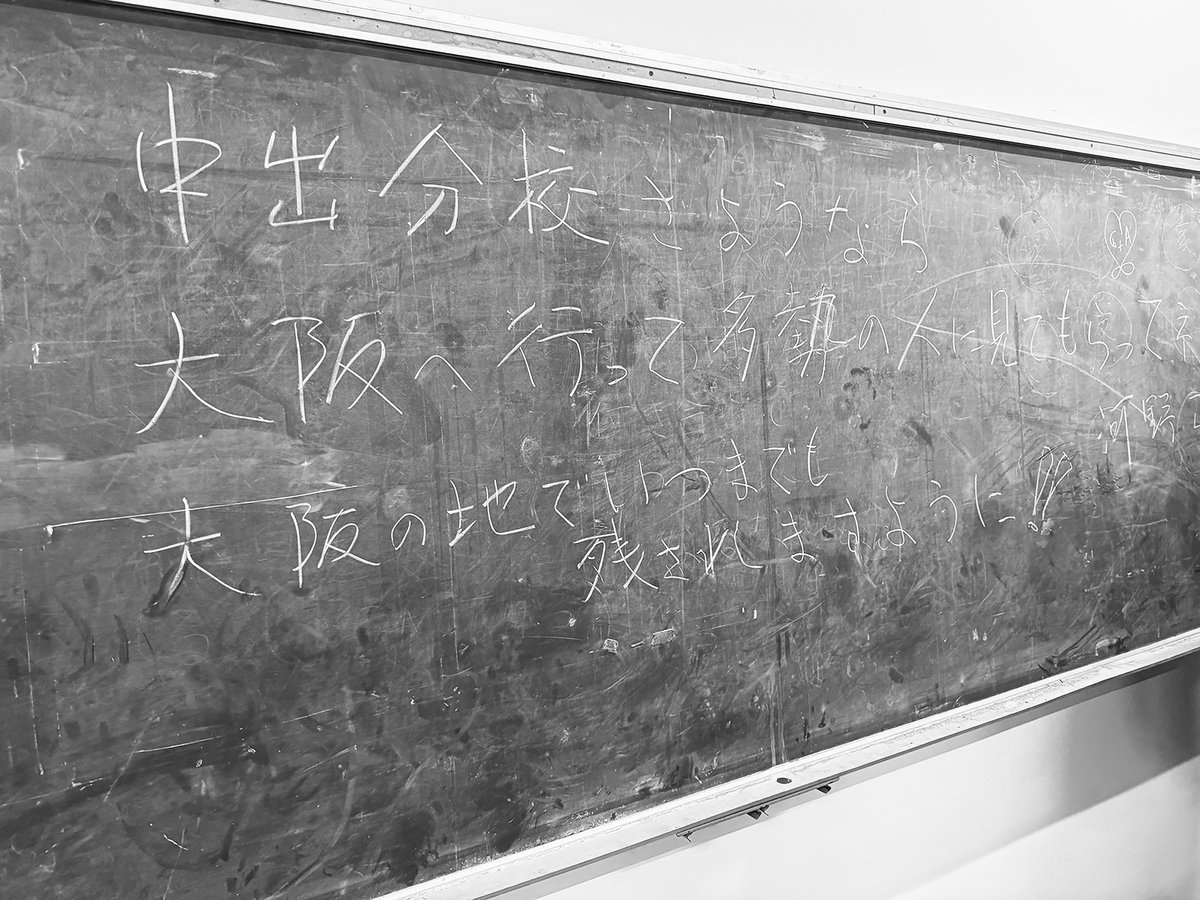 中出分校さようなら
大阪へ行って多勢の人に見てもらって
河野
大阪の地でいつまでも
残されますように!!